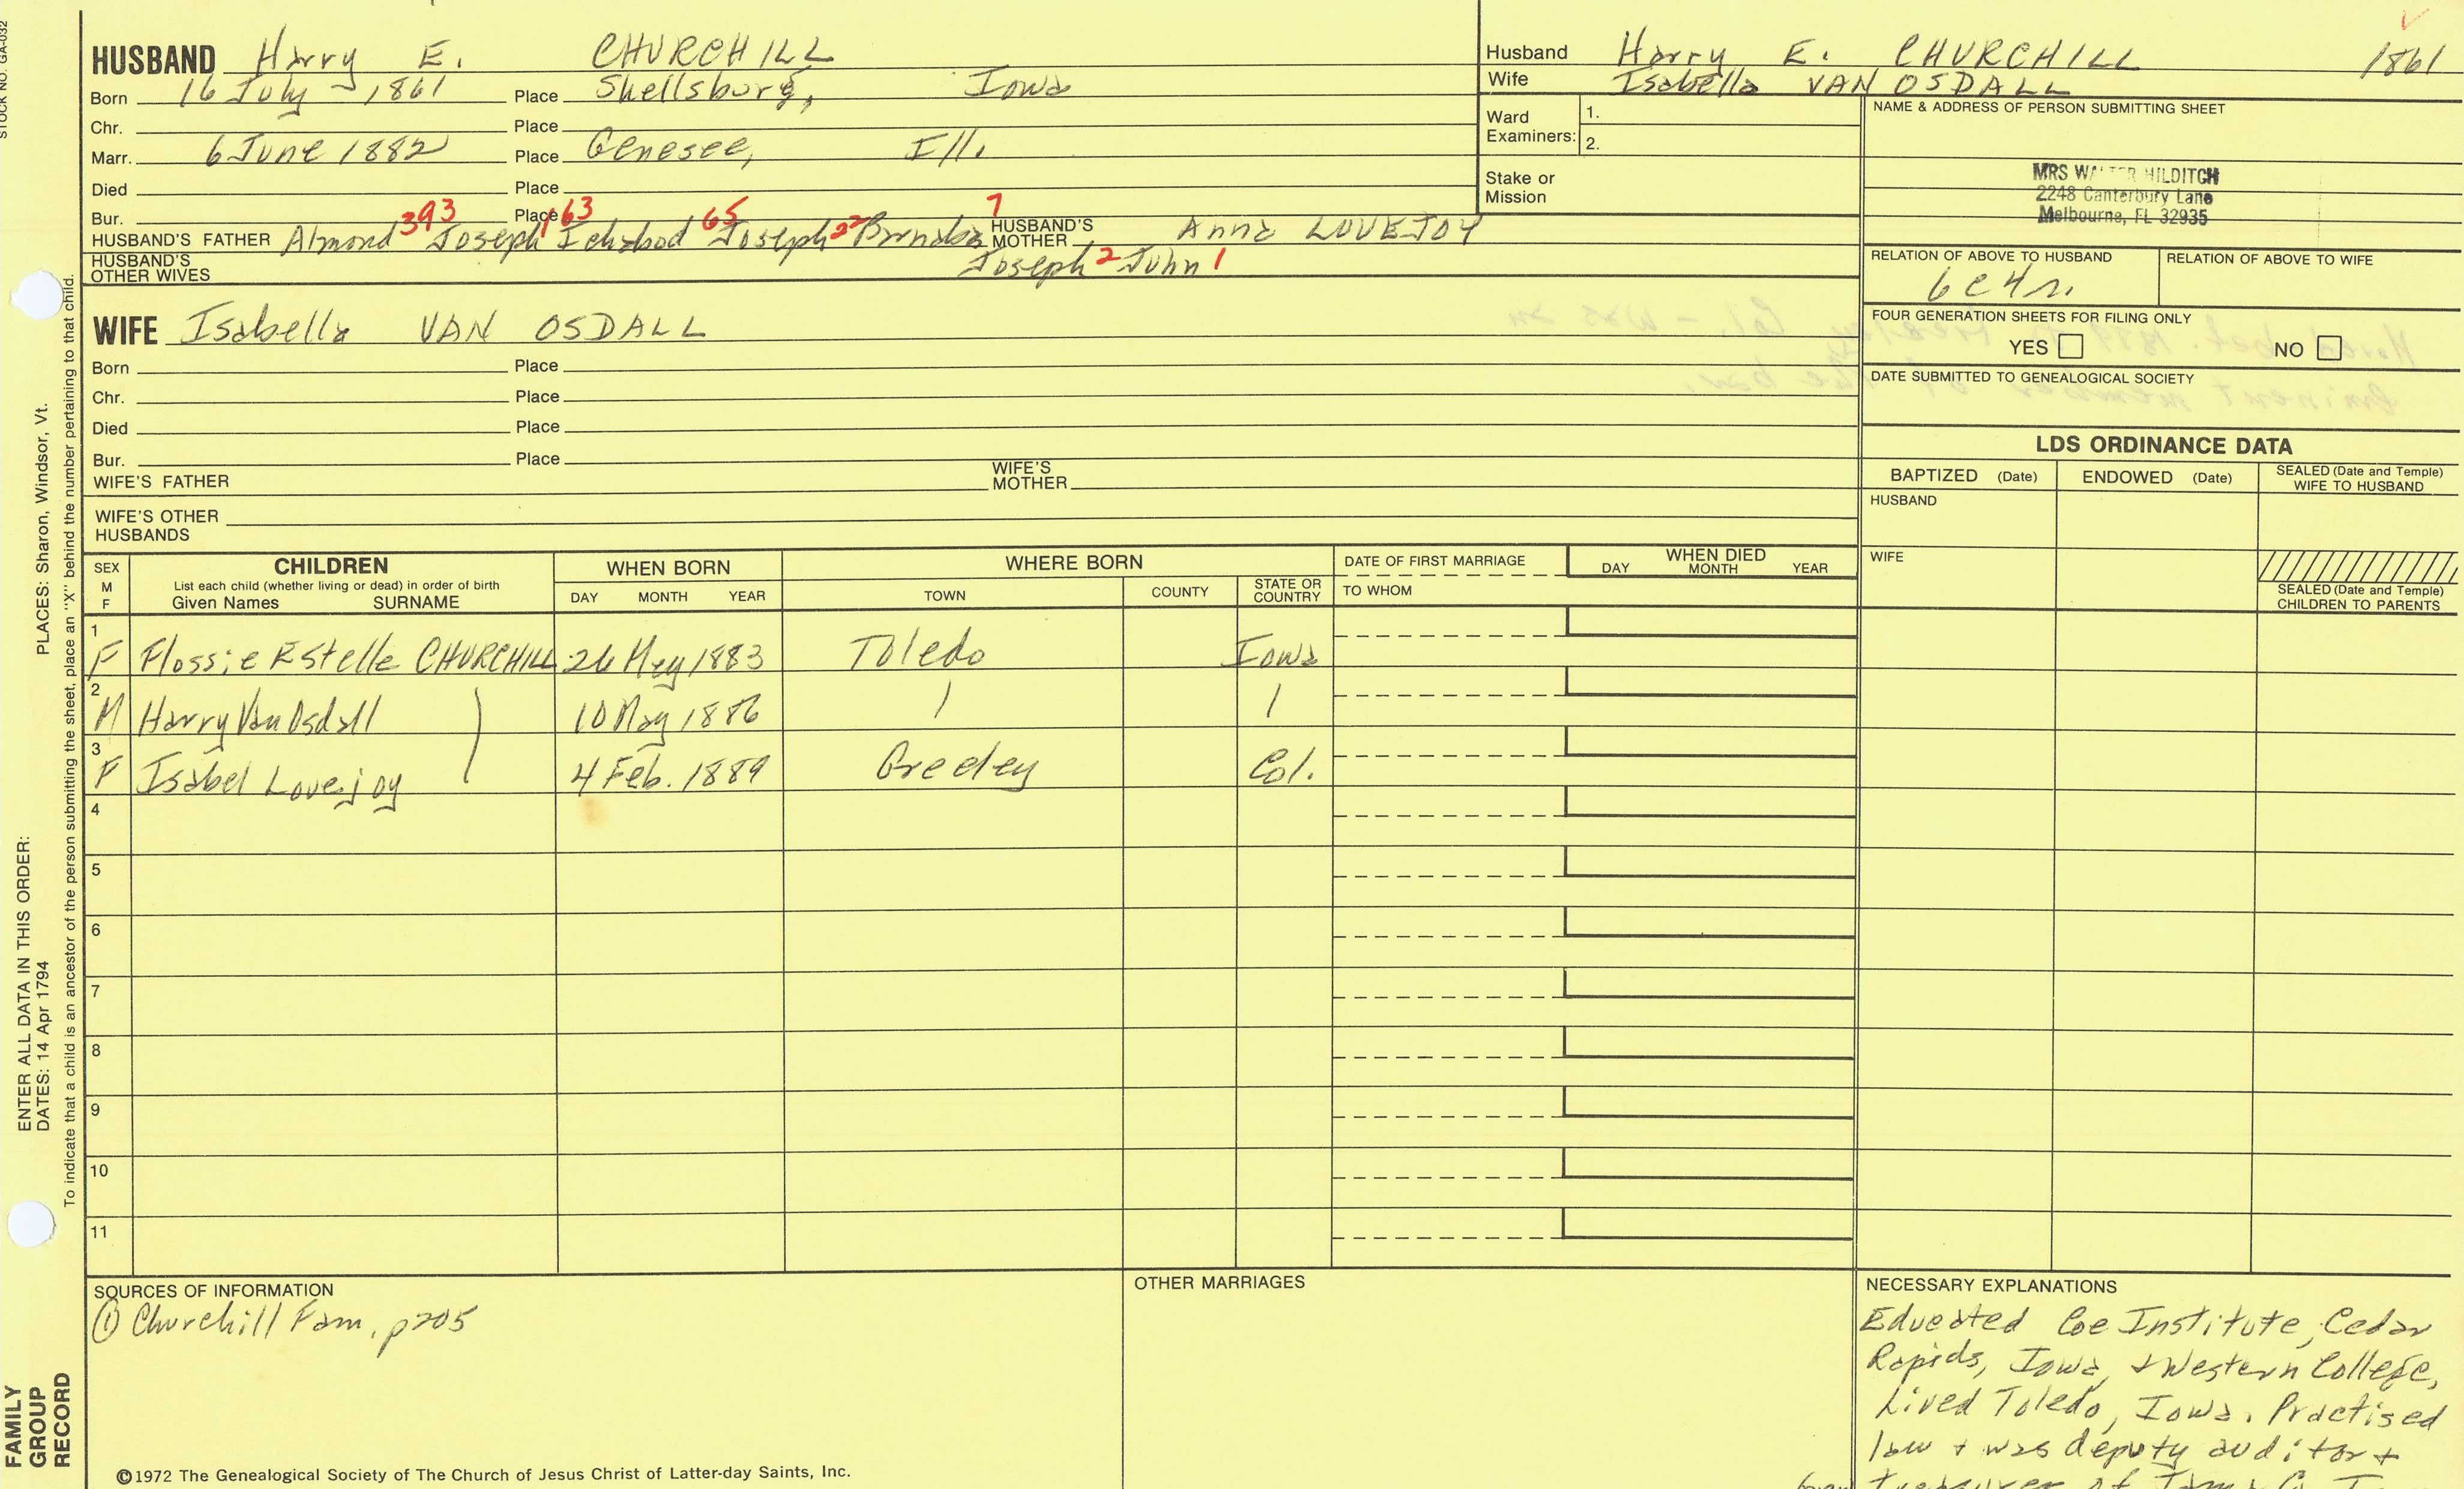 STOCK NO. GA-032
HUSBAND Harry E. CHURCHILL
Born 16 July 1861 Place Shellsburg, Iowa
Chr. Place
Marr. 6 June 1882 Place Genesee, Ill.
Died Place
Bur. Place
393 163 65 22 7
HUSBAND'S FATHER Almond Joseph Ichabod Joseph Barnabas HUSBAND'S MOTHER Anna LOVEJOY
HUSBAND'S OTHER WIVES Joseph 2 John 1
WIFE Isabella VAN OSDALL
Born Place
Chr. Place
Died Place
Bur. Place
WIFE'S FATHER WIFE'S MOTHER
WIFE'S OTHER HUSBANDS
Husband Harry E. CHURCHILL 1861
Wife Isabella VAN OSDALL
Ward Examiners: 1.
2.
Stake or Mission
NAME & ADDRESS OF PERSON SUBMITTING SHEET
MRS WALTER HILDITCH
2248 Canterbury Lane
Melbourne, FL 32935
RELATION OF ABOVE TO HUSBAND RELATION OF ABOVE TO WIFE
6c4r.
FOUR GENERATION SHEETS FOR FILING ONLY
YES NO
DATE SUBMITTED TO GENEALOGICAL SOCIETY
LDS ORDINANCE DATA
BAPTIZED (Date) ENDOWED (Date) SEALED (Date and Temple) WIFE TO HUSBAND
HUSBAND
WIFE
SEALED (Date and Temple) CHILDREN TO PARENTS
SEX M F
CHILDREN
List each child (whether living or dead) in order of birth
Given Names SURNAME
WHEN BORN
DAY MONTH YEAR
WHERE BORN
TOWN COUNTY STATE OR COUNTRY
DATE OF FIRST MARRIAGE
TO WHOM
WHEN DIED
DAY MONTH YEAR
1 F Flossie Estelle CHURCHILL 26 May 1883 Toledo Iowa
2 M Harry Van Osdall 10 May 1886
3 F Isabel Lovejoy 4 Feb. 1889 Greeley Col.
4
5
6
7
8
9
10
11
SOURCES OF INFORMATION
① Churchill Fam, p205
OTHER MARRIAGES
NECESSARY EXPLANATIONS
Educated Coe Institute, Cedar
Rapids, Iowa, + Western College,
Lived Toledo, Iowa. Practised
law + was deputy auditor +
treasurer of Tama Co.
©1972 The Genealogical Society of The Church of Jesus Christ of Latter-day Saints, Inc.
FAMILY
GROUP
RECORD
ENTER ALL DATA IN THIS ORDER:
DATES: 14 Apr 1794
PLACES: Sharon, Windsor, Vt.
To indicate that a child is an ancestor of the person submitting the sheet, place an "X" behind the number pertaining to that child.